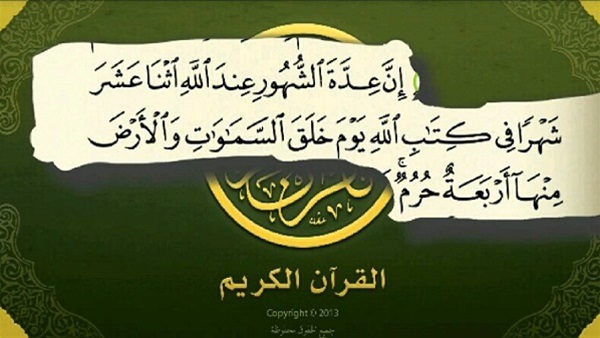 إِنَّ عِدَّةَ ٱلشُّهُورِ عِندَ ٱللَّهِ ٱثۡنَا عَشَرَ
شَهۡرٗا فِي كِتَٰبِ ٱللَّهِ يَوۡمَ خَلَقَ ٱلسَّمَٰوَٰتِ وَٱلۡأَرۡضَ
مِنۡهَآ أَرۡبَعَةٌ حُرُمٞۚ
القرآن الكريم
Copyright © 2013
جميع الحقوق محفوظة